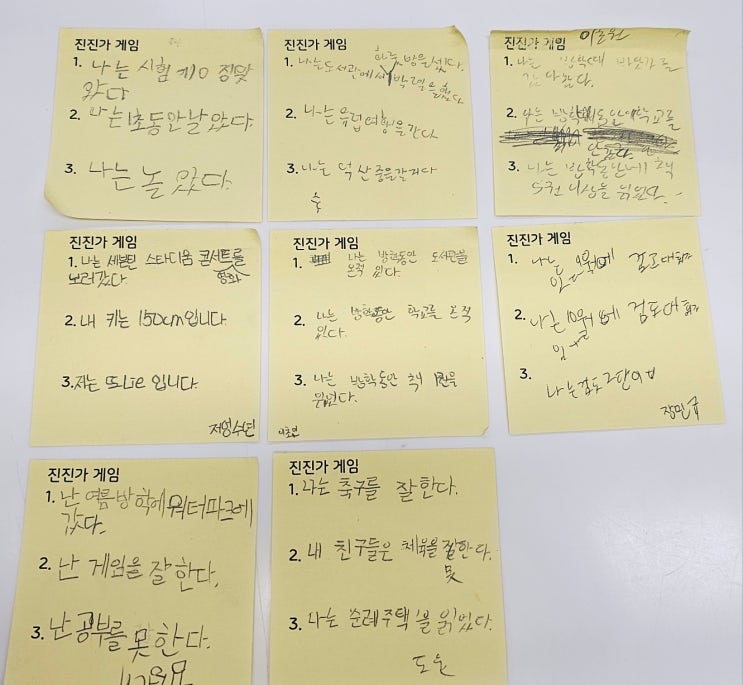 진진가 게임
1. 나는 시험 개0 정맞
았다
2. 나는 초동안 날았다.
3. 나는 놀 았다.
진진가 게임
1. 나는 도서관에서 박 2일을 했다
하룻밤을 샜다.
2. 나는 유럽여행을 간다
3. 나는 억
진진가 게임
1. 나는 방학때 바닷가를
갔다왔다.
2. 나는 방학 동안에 학교를
안갔다
3. 나는 방학동안에 책
5권 이상을 읽었다.
진진가 게임
1. 나는 세븐틴 스타디움 콘서트를
영화
보러갔다
2. 내 키는 150cm입니다.
3. 저는 또Lie 입니다.
진진가 게임
1. 나는 방학동안 도서관을
온적 있다.
2. 나는 방학동안 학교를 온적
있다.
3. 나는 방학동안 책 1권을
읽었다.
진진가 게임
1. 나는 9월에 검도대회
2. 나는 10월에 검도대회
3. 나는 검도 2단이
장민규
진진가 게임
1. 난 여름방학에 워터파크에
갔다.
2. 난 게임을 잘 한다.
3. 난 공부를 못 한다.
진진가 게임
1. 나는 축구를 잘한다.
2. 내 친구들은 체육을 잘한다.
못
3. 나는 순례주택을 읽었다.
도윤